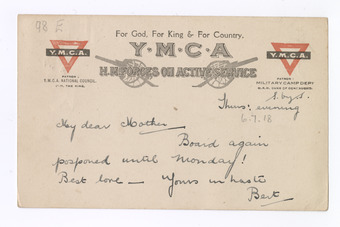 98 E
For God, For King & For Country.
Y.M.C.A
H.M. FORCES ON ACTIVE SERVICE
Y.M.C.A.
PATRON
Y.M.C.A. NATIONAL COUNCIL
H.M. THE KING.
Y.M.C.A.
PATRON
MILITARY CAMP DEPT
H.R.H. DUKE OF CONNAUGHT.
Thurs: evening
6.7.18
My dear Mother
Board again
posponed until Monday!
Best love — Yours in haste
Bert